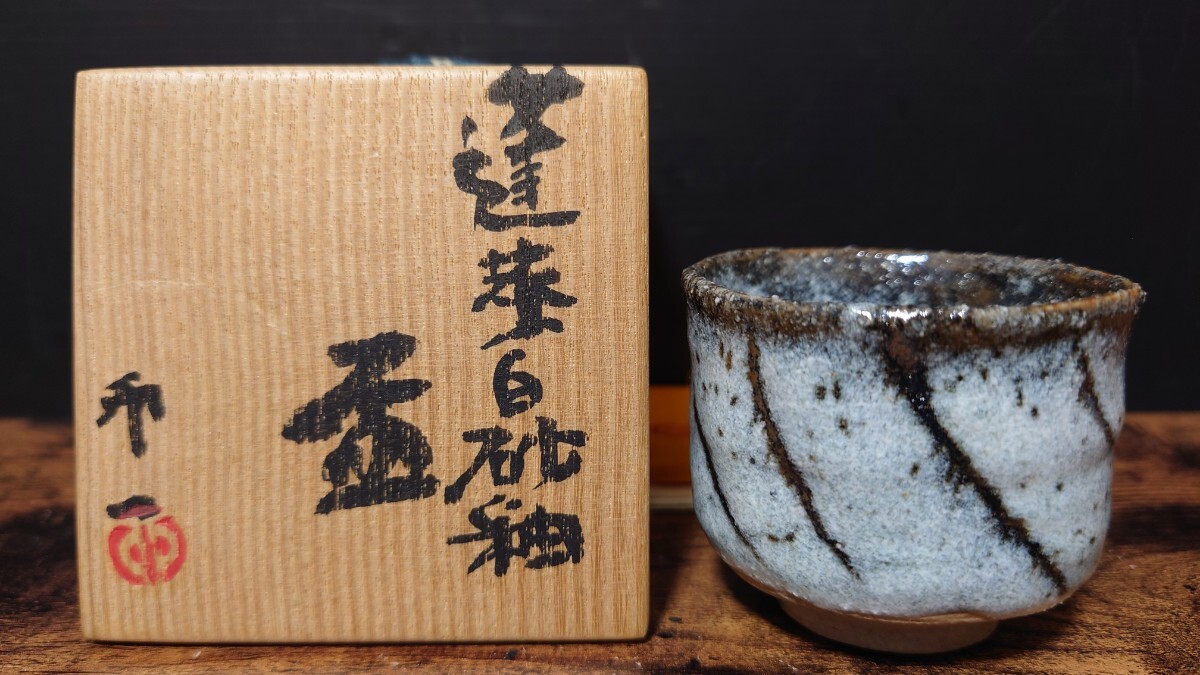 蓬莱白砂釉
盃
卯一